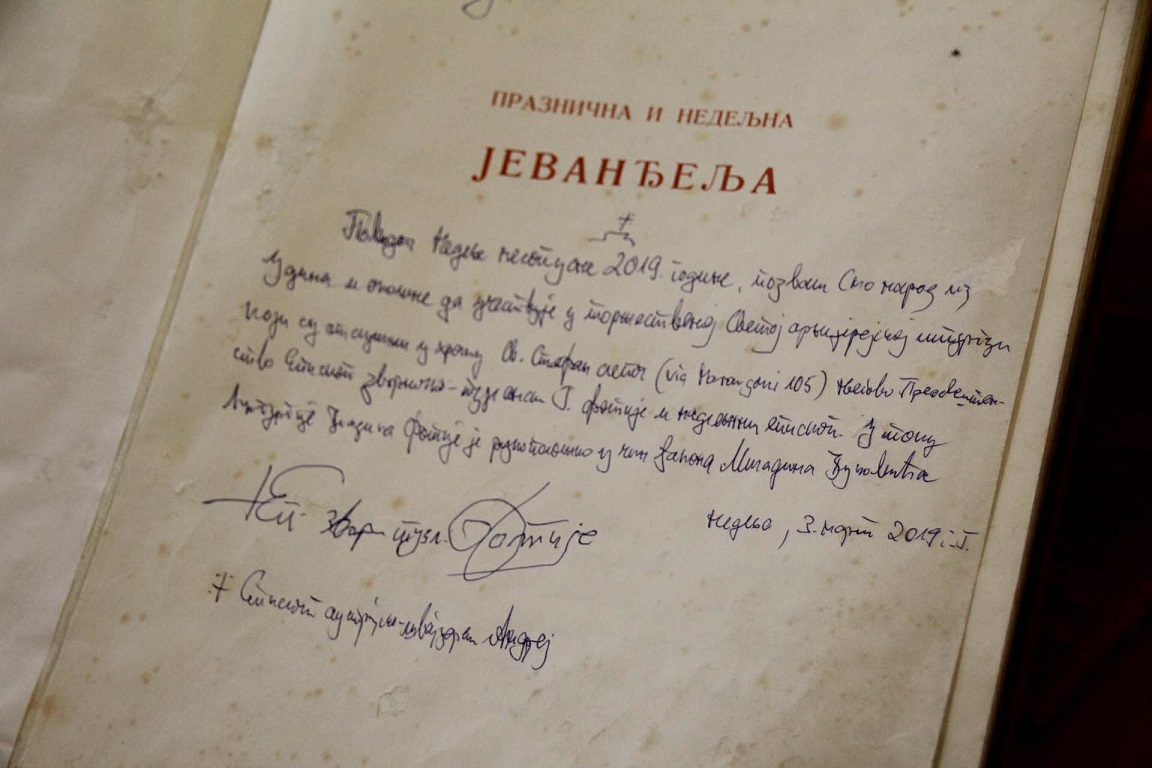 ПРАЗНИЧНА И НЕДЕЉНА
ЈЕВАНЂЕЉА
Поводом Недеље месопусне 2019. године, позвани смо народ из
Удина и околине да учествује у торжественој Светој архијерејској литургији
који су отслужили у храму Св. Стефан (via Marangoni 105) Његово Преосвештен-
ство Епископ зворничко-тузлански Г. Фотије и надлежни епископ. У току
Литургије Владика Фотије је рукоположио у чин ђакона Миладина Вуковића
Недеља, 3. март 2019. г.
+ Еп. звор. тузл. Фотије
+ Епископ аустријско-швајцарски Андреј